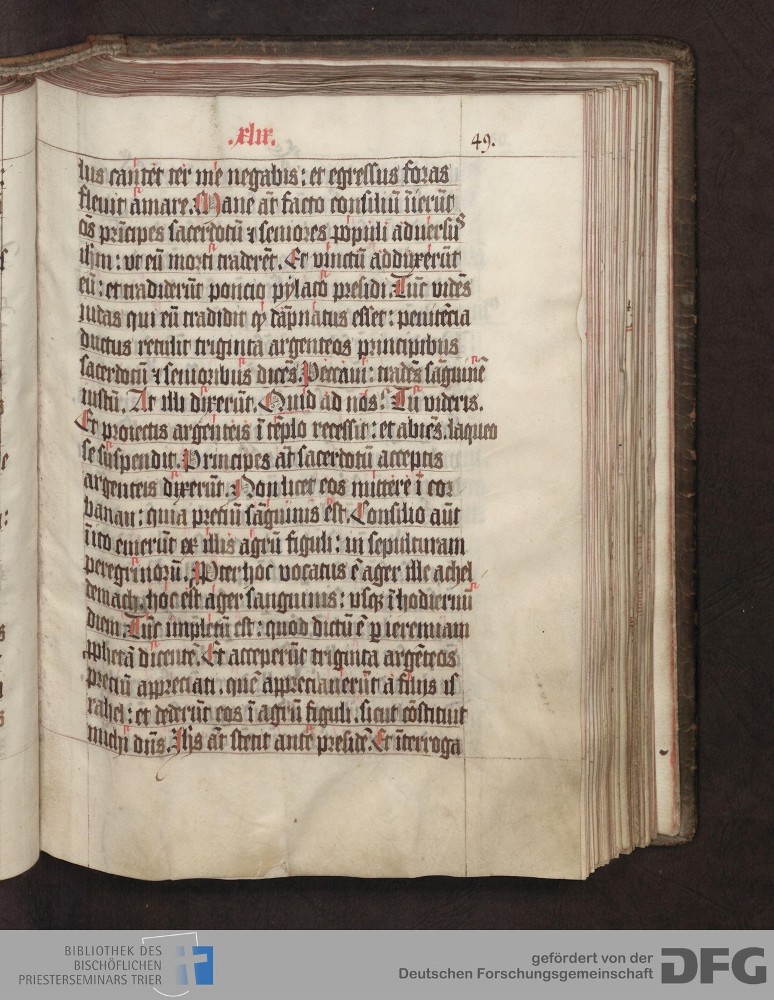 .xlix.
49.
lus cantet ter me negabis: et egressus foras
fleuit amare. Mane aūt facto consiliū īierūt
oēs prīcipes sacerdotū ⁊ seniores populi aduersus
ihm: vt eū morti traderēt. Et vinctū adduxerūt
eū: et tradiderūt poncio pylato presidi. Tūc vidēs
iudas qui eū tradidit qꝫ dāpnatus esset: penitēcia
ductus retulit triginta argenteos principibus
sacerdotū ⁊ senioribus dicēs. Peccaui: tradēs sāguinē
iustū. At illi dixerūt. Quid ad nos? Tu videris.
Et proiectis argenteis ī tēplo recessit: et abiēs. laqueo
se suspendit. Principes aūt sacerdotū acceptis
argenteis dixerūt. Non licet eos mittere ī cor
banan: quia preciū sāguinis est. Consilio aūt
īito emerūt ex illis agrū figuli: in sepulturam
peregrinorū. Ppter hoc vocatus ē ager ille achel
demach. hoc est ager sanguinis: vsqꝫ ī hodiernū
diem. Tūc impletū est: quod dictū ē ꝑ ieremiam
ꝓphetā dicentē. Et acceperūt triginta argēteos
preciū appreciati. quē appreciauerūt a filijs is
rahel: et dederūt eos ī agrū figuli. sicut cōstituit
michi dūs. Ihs aūt stetit ante presidē. Et īterroga
BIBLIOTHEK DES
BISCHÖFLICHEN
PRIESTERSEMINARS TRIER
gefördert von der
Deutschen Forschungsgemeinschaft
DFG